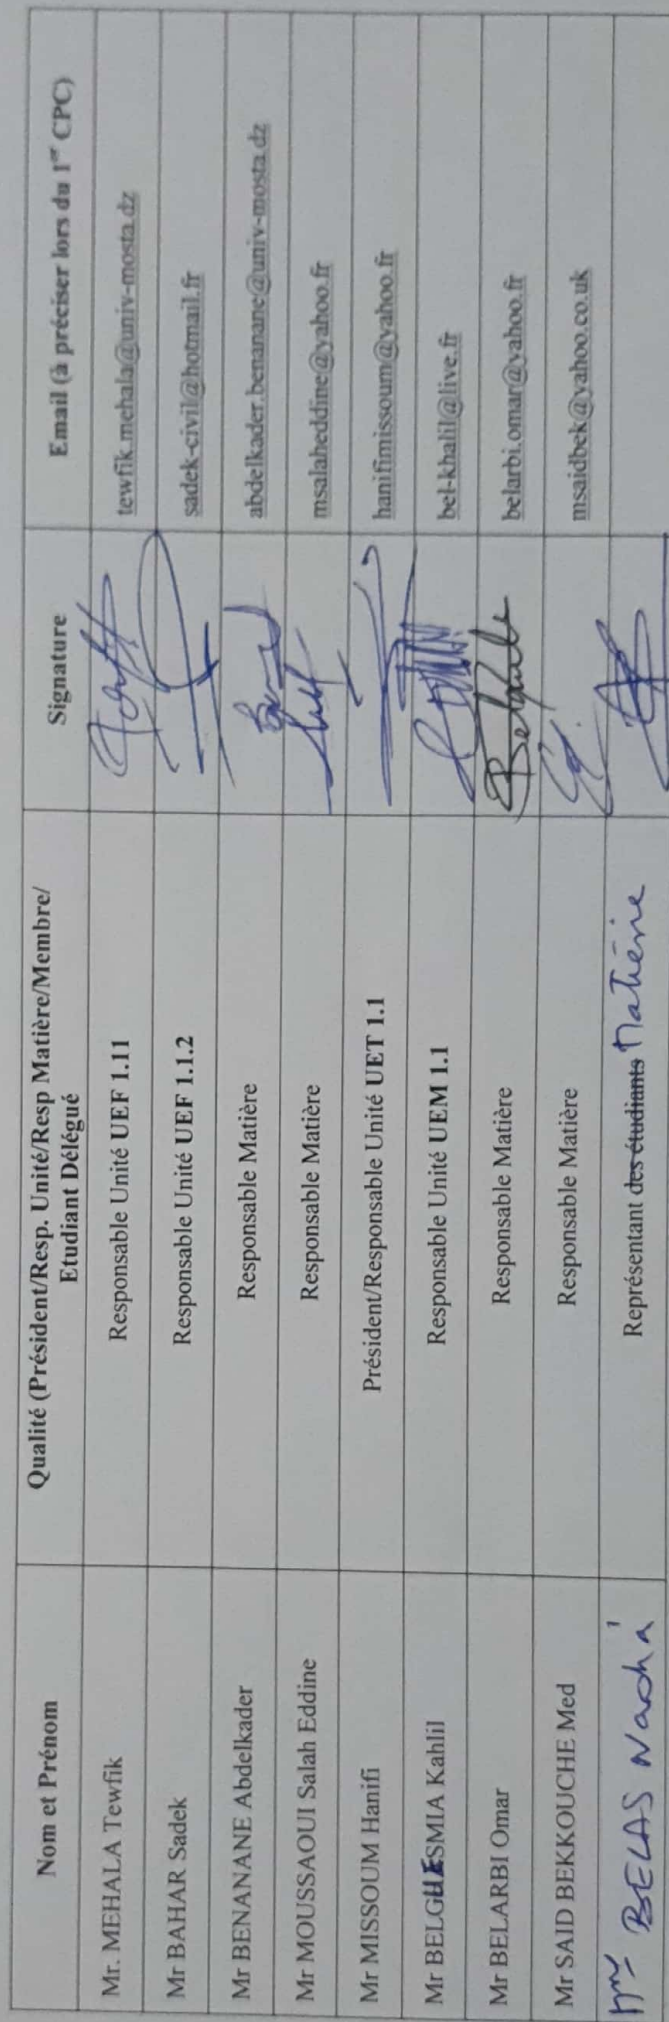 Nom et Prénom
Qualité (Président/Resp. Unité/Resp Matière/Membre/
Etudiant Délégué
Signature
Email (à préciser lors du 1er CPC)
Mr. MEHALA Tewfik
Responsable Unité UEF 1.11
tewfik.mehala@univ-mosta.dz
Mr BAHAR Sadek
Responsable Unité UEF 1.1.2
sadek-civil@hotmail.fr
Mr BENANANE Abdelkader
Responsable Matière
abdelkader.benanane@univ-mosta.dz
Mr MOUSSAOUI Salah Eddine
Responsable Matière
msalaheddine@yahoo.fr
Mr MISSOUM Hanifi
Président/Responsable Unité UET 1.1
hanifimissoum@yahoo.fr
Mr BELGUESMIA Kahlil
Responsable Unité UEM 1.1
bel-khalil@live.fr
Mr BELARBI Omar
Responsable Matière
belarbi.omar@yahoo.fr
Mr SAID BEKKOUCHE Med
Responsable Matière
msaidbek@yahoo.co.uk
BELAS
Représentant des étudiants Matière